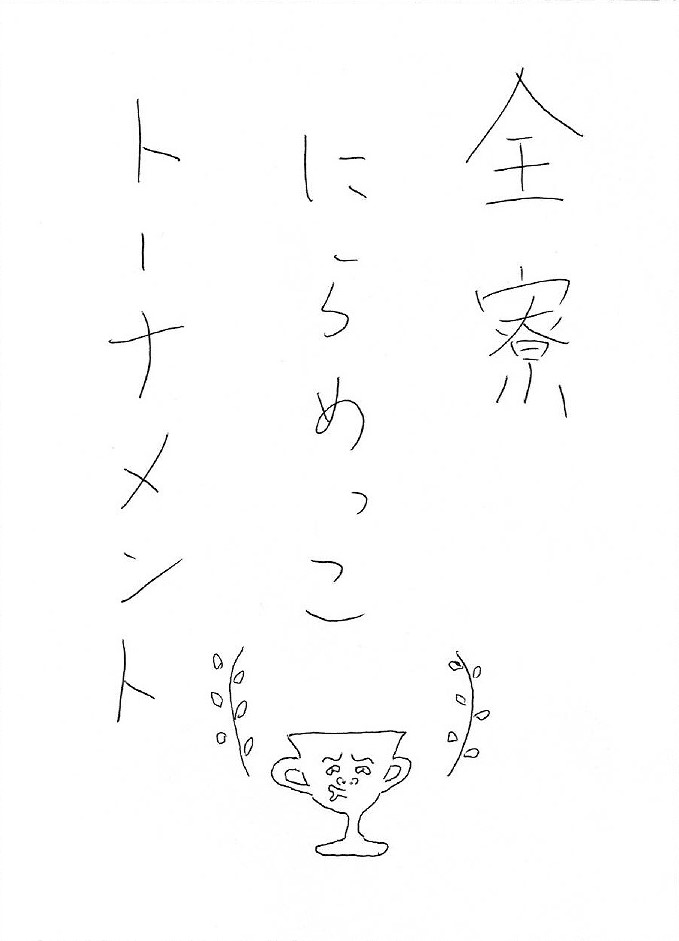 全寮
にらめっこ
トーナメント